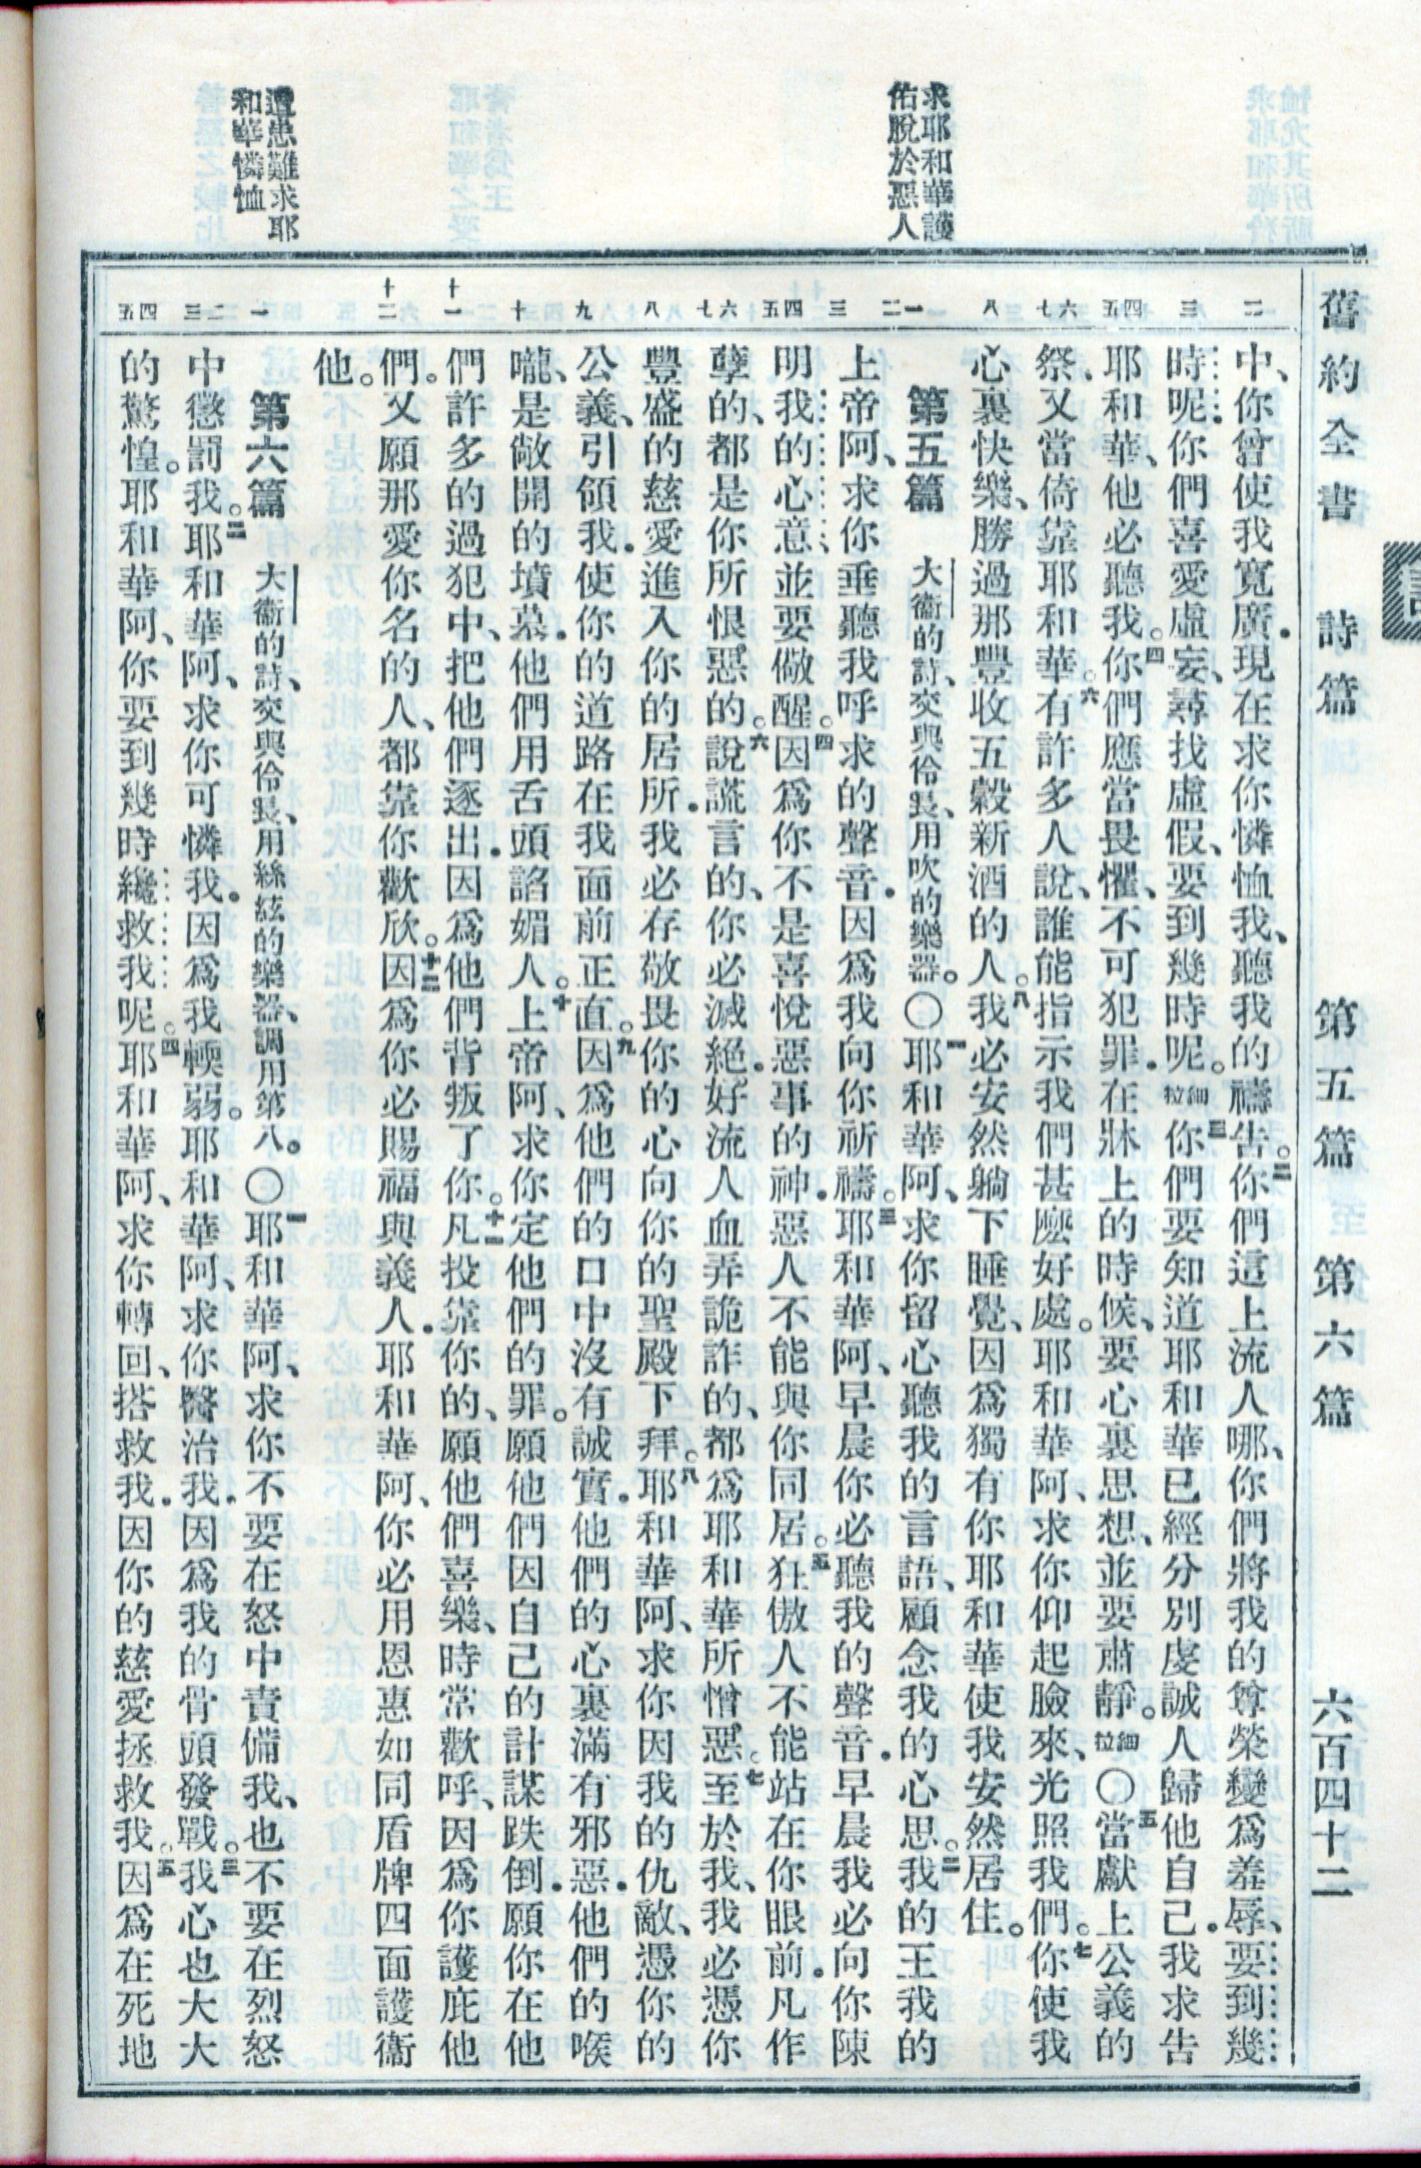 舊約全書 詩篇 第五篇 至 第六篇 六百四十二
求耶和華護
佑脫於惡人
遭患難求耶
和華憐恤
二 三 四 五 六 七 八 一 二 三 四 五 六 七 八 九 十 十一 十二 一 二 三 四 五
中、你曾使我寬廣．現在求你憐恤我、聽我的禱告。二你們這上流人哪、你們將我的尊榮變爲羞辱、要到幾
時呢．你們喜愛虛妄、尋找虛假、要到幾時呢。細拉三你們要知道耶和華已經分別虔誠人歸他自己．我求告
耶和華、他必聽我。四你們應當畏懼、不可犯罪．在牀上的時候、要心裏思想、並要肅靜。細拉〇五當獻上公義的
祭、又當倚靠耶和華。六有許多人說、誰能指示我們甚麼好處。耶和華阿、求你仰起臉來、光照我們。七你使我
心裏快樂、勝過那豐收五穀新酒的人。八我必安然躺下睡覺、因爲獨有你耶和華使我安然居住。
第五篇 大衞的詩、交與伶長、用吹的樂器。〇一耶和華阿、求你留心聽我的言語、顧念我的心思。二我的王我的
上帝阿、求你垂聽我呼求的聲音．因爲我向你祈禱。三耶和華阿、早晨你必聽我的聲音．早晨我必向你陳
明我的心意、並要儆醒。四因爲你不是喜悅惡事的神．惡人不能與你同居。五狂傲人不能站在你眼前．凡作
孽的、都是你所恨惡的。六說謊言的、你必滅絕．好流人血弄詭詐的、都爲耶和華所憎惡。七至於我、我必憑你
豐盛的慈愛進入你的居所．我必存敬畏你的心向你的聖殿下拜。八耶和華阿、求你因我的仇敵、憑你的
公義、引領我．使你的道路在我面前正直。九因爲他們的口中沒有誠實．他們的心裏滿有邪惡．他們的喉
嚨、是敞開的墳墓．他們用舌頭諂媚人。十上帝阿、求你定他們的罪。願他們因自己的計謀跌倒．願你在他
們許多的過犯中、把他們逐出．因爲他們背叛了你。十一凡投靠你的、願他們喜樂、時常歡呼、因爲你護庇他
們。又願那愛你名的人、都靠你歡欣。十二因爲你必賜福與義人．耶和華阿、你必用恩惠如同盾牌四面護衞
他。
第六篇 大衞的詩、交與伶長、用絲絃的樂器、調用第八。〇一耶和華阿、求你不要在怒中責備我、也不要在烈怒
中懲罰我。二耶和華阿、求你可憐我．因爲我輭弱。耶和華阿、求你醫治我．因爲我的骨頭發戰。三我心也大大
的驚惶。耶和華阿、你要到幾時纔救我呢。四耶和華阿、求你轉回、搭救我．因你的慈愛拯救我。五因爲在死地